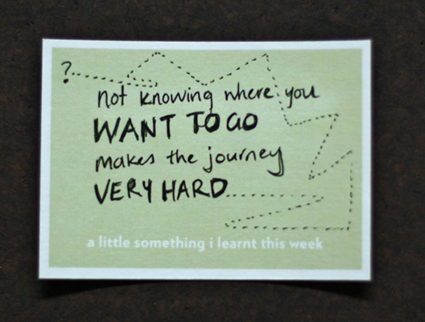 ?
not knowing where you
WANT TO GO
makes the journey
VERY HARD
a little something i learnt this week